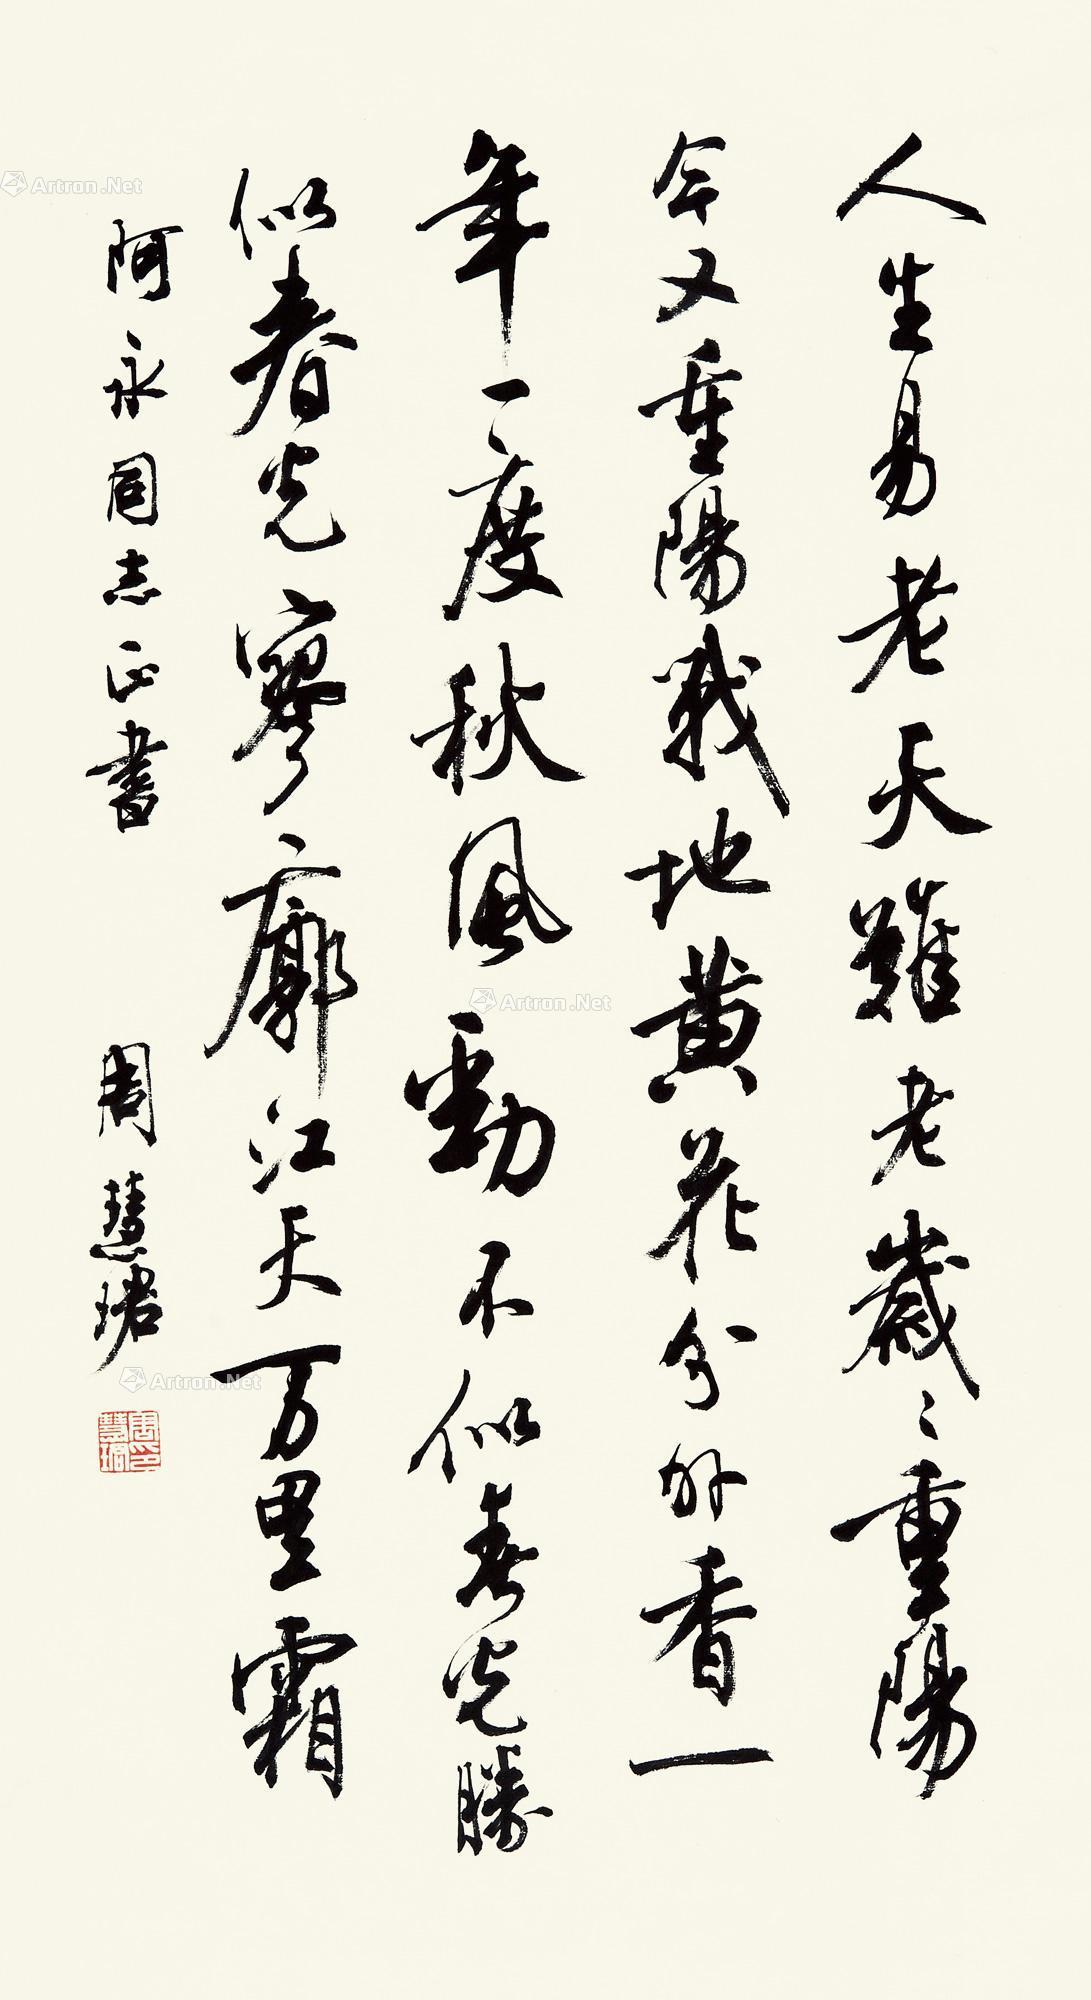 人生易老天難老歲〻重陽
今又重陽戰地黄花分外香一
年一度秋風勁不似春光勝
似春光寥廓江天万里霜
阿永同志正書
周慧珺
周慧珺印
Artron.Net
Artron.Net
Artron.Net